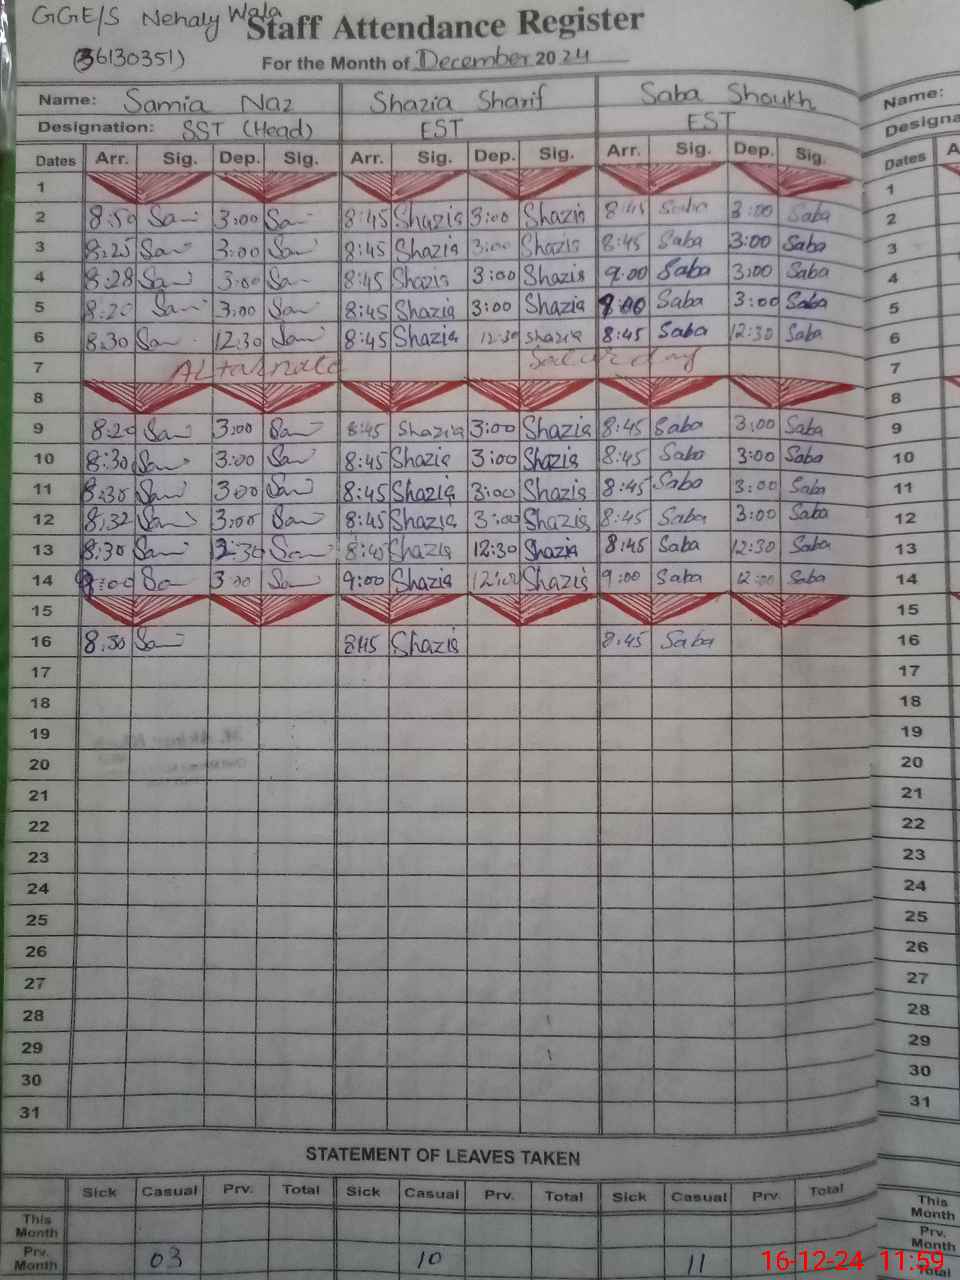 GGE/S Nehaly Wala
Staff Attendance Register
(36130351)
For the Month of December 2024
Name: Samia Naz Shazia Sharif Saba Shoukh Name:
Designation: SST (Head) EST EST Designa
Dates Arr. Sig. Dep. Sig. Arr. Sig. Dep. Sig. Arr. Sig. Dep. Sig. Dates A
1 1
2 8:50 Sam 3:00 Sam 8:45 Shazia 3:00 Shazia 8:45 Saba 3:00 Saba 2
3 8:25 Sam 3:00 Sam 8:45 Shazia 3:00 Shazia 8:45 Saba 3:00 Saba 3
4 8:28 Sam 3:00 Sam 8:45 Shazia 3:00 Shazia 9:00 Saba 3:00 Saba 4
5 8:20 Sam 3:00 Sam 8:45 Shazia 3:00 Shazia Saba 3:00 Saba 5
6 8:30 Sam 12:30 Sam 8:45 Shazia 12:30 Shazia 8:45 Saba 12:30 Saba 6
7 Saturday 7
8 8
9 8:20 Sam 3:00 Sam 8:45 Shazia 3:00 Shazia 8:45 Saba 3:00 Saba 9
10 8:30 Sam 3:00 Sam 8:45 Shazia 3:00 Shazia 8:45 Saba 3:00 Saba 10
11 8:30 Sam 3:00 Sam 8:45 Shazia 3:00 Shazia 8:45 Saba 3:00 Saba 11
12 8:32 Sam 3:00 Sam 8:45 Shazia 3:00 Shazia 8:45 Saba 3:00 Saba 12
13 8:30 Sam Sam 8:45 Shazia 12:30 Shazia 8:45 Saba 12:30 Saba 13
14 Sam 3:00 Sam 9:00 Shazia 12:00 Shazia 9:00 Saba 12:00 Saba 14
15 15
16 8:30 Sam 8:45 Shazia 8:45 Saba 16
17 17
18 18
19 19
20 20
21 21
22 22
23 23
24 24
25 25
26 26
27 27
28 28
29 29
30 30
31 31
STATEMENT OF LEAVES TAKEN
Sick Casual Prv. Total Sick Casual Prv. Total Sick Casual Prv. Total
This Month This Month
Prv. Month 03 10 11 Prv. Month
Total
16-12-24 11:59